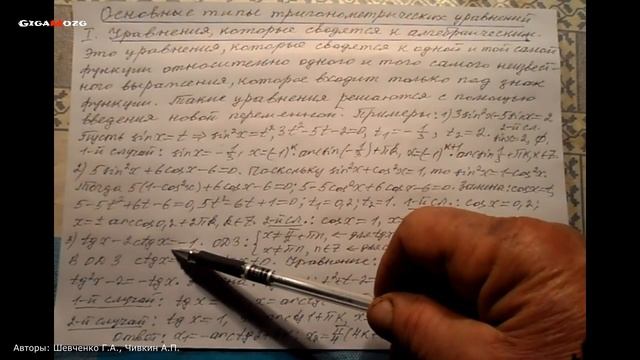 GIGAMOZG
Основные типы тригонометрических уравнений
I. Уравнения, которые сводятся к алгебраическим.
Это уравнения, которые сводятся к одной и той самой
функции относительно одного и того самого неизвест-
ного выражения, которое входит только под знак
функции. Такие уравнения решаются с помощью
введения новой переменной. Примеры: 1) 3sin²x-5sinx=2
Пусть sinx=t ⇒ sin²x=t², 3t²-5t-2=0, t₁=-1/3, t₂=2. 2-й сл. sinx=2, ∅,
1-й случай: sinx=-1/3, x=(-1)ᵏ·arcsin(-1/3)+πk, x=(-1)ᵏ⁺¹·arcsin1/3+πk, k∈Z.
2) 5sin²x+6cosx-6=0. Поскольку sin²x+cos²x=1, то sin²x=1-cos²x.
Тогда 5(1-cos²x)+6cosx-6=0; 5-5cos²x+6cosx-6=0; Замена: cosx=t,
5-5t²+6t-6=0, 5t²-6t+1=0; t₁=0,2; t₂=1. 1-й сл.: cosx=0,2;
x=± arccos0,2+2πk, k∈Z. 2-й сл.: cosx=1, x
3) tgx-2ctgx=-1. ОДЗ: { x≠π/2+πn, ← для tgx
x≠πn, n∈Z ←
В ОДЗ ctgx ≠0. Уравнение:
tg²x-2=-tgx. t-2=
1-й случай: tgx= x=arctg
2-й случай: tgx=1, 1+πk, x
Ответ: x₁=-arctg2 x₂=π/4(4k+
Авторы: Шевченко Г.А., Чивкин А.П.